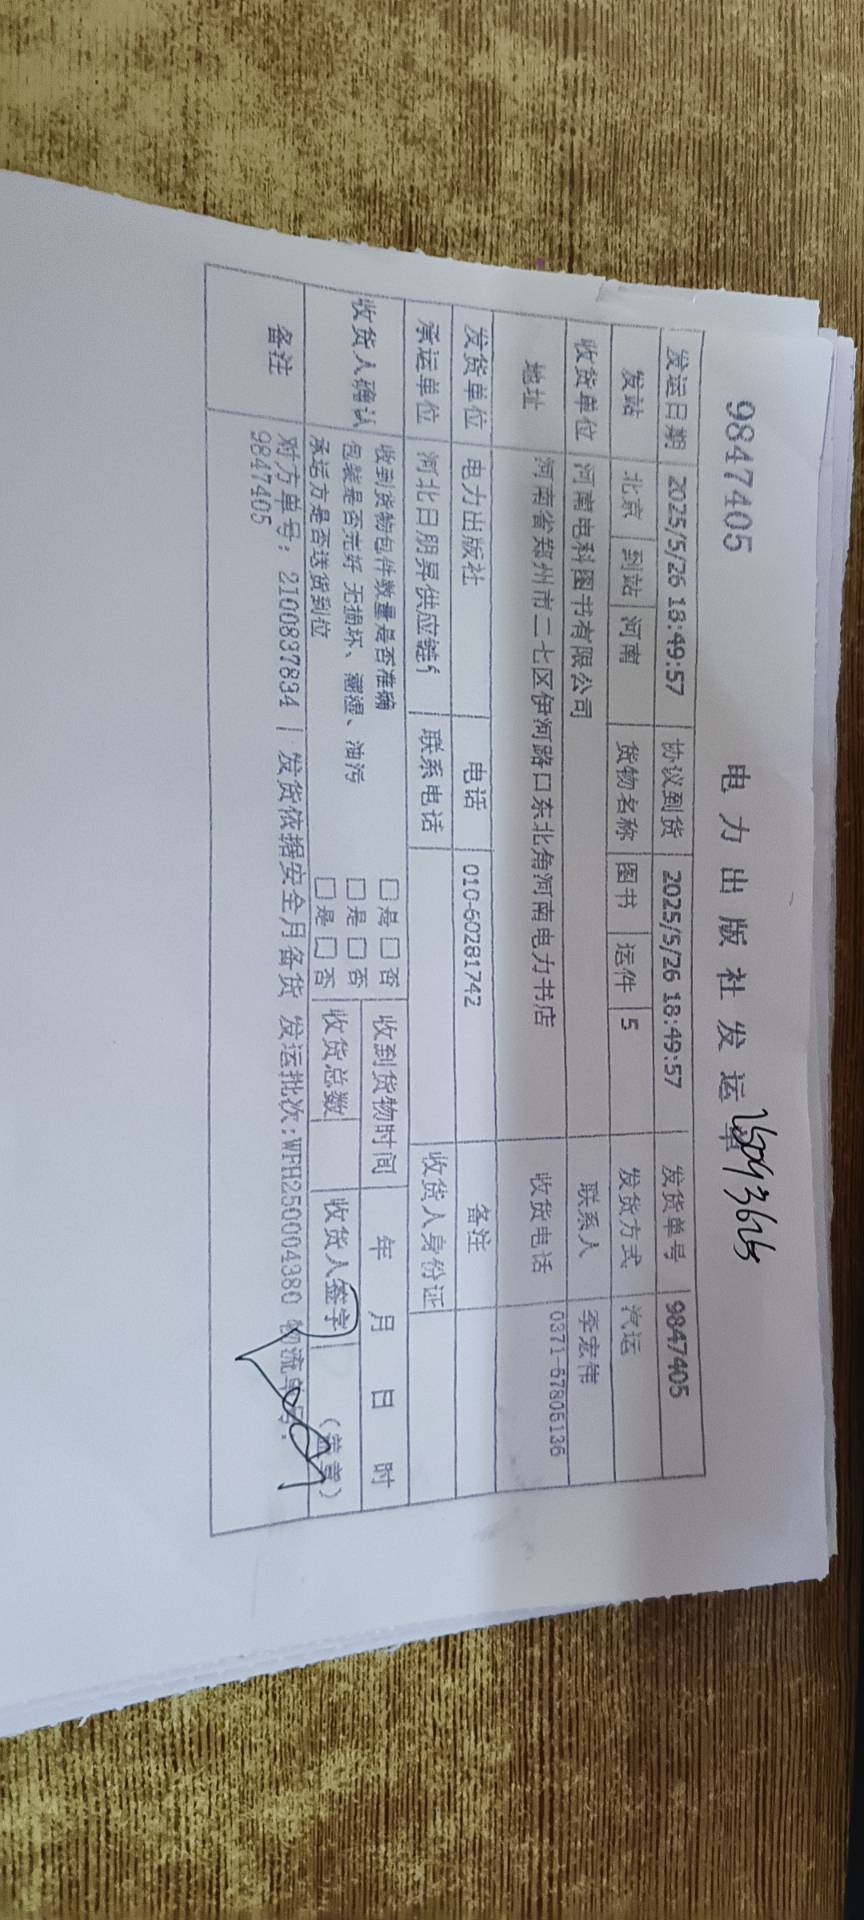 9847405 电力出版社发运单
发运日期 2025/5/26 18:49:57 协议到货 2025/5/26 18:49:57 发货单号 9847405
发站 北京 到站 河南 货物名称 图书 运件 5 发货方式 汽运
收货单位 河南电科图书有限公司 联系人 李宏伟
地址 河南省郑州市二七区伊河路口东北角河南电力书店 收货电话 0371-67805136
发货单位 电力出版社 电话 010-60281742 备注
承运单位 河北日朋昇供应链 联系电话 收货人身份证
收货人确认 收到货物包件数量是否准确 □是 □否 收到货物时间 年 月 日 时
包装是否完好 无损坏、潮湿、油污 □是 □否
承运方是否送货到位 □是 □否 收货总数 收货人签字 (盖章)
备注 对方单号：2100837834 | 发货依据安全月备货 发运批次:WFH250004380 物流单号：
9847405